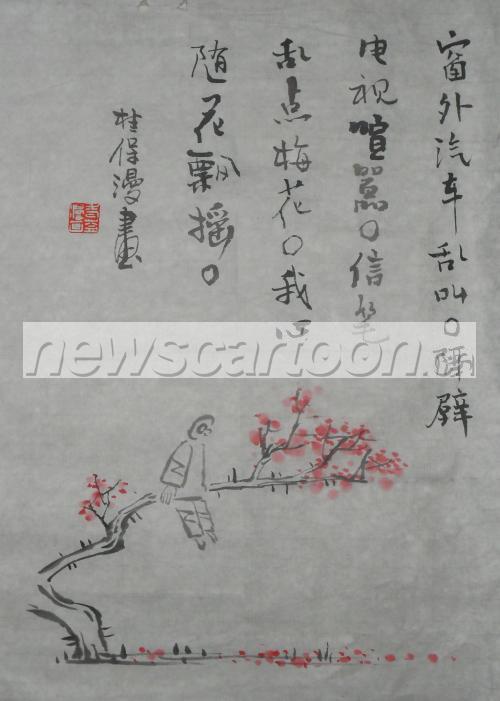 窗外汽车乱叫。隔壁
电视喧嚣。信笔
乱点梅花。我心
随花飘摇。
桂保漫畫
newscartoon.